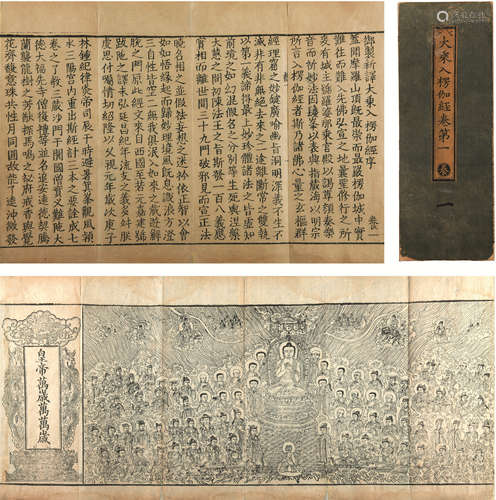 御製新譯大乘入楞伽經序 卷一
蓋聞摩羅山頂既最崇而最嚴楞伽城中實
難往而難入先佛弘宣之地曩聖修行之所
爰有城主號羅婆那乘宮殿以謁尊顏奏樂
音而祈妙法因鬘峯以表興指藏海以明宗
所言入楞伽經者斯乃諸佛心量之玄樞群
經理窟之妙鍵廣喻幽旨洞明深義不生不
滅非有非無絕去來之二途離斷常之雙執
以第一義諦得最上妙珍體諸法之皆虛知
前境之如幻混假名之分別等生死與涅槃
大慧之問初陳法王之旨斯發一百八義應
實相而離世間三十九門破邪見而宣正法
曉名相之並假祛妄想之迷衿依正智以會
真如悟緣起而歸妙理境風既息識浪方澄
三自性皆空二無我俱泯入如來之藏遊解
脫之門原此經文來自西國至若元嘉建號
跋陀之譯未弘延昌紀年流支之義多舛
朕思付囑情切紹隆以久視元年歲次庚子
林鍾紀律炎帝司辰于時避暑箕峯觀風潁
水三陽宮內重出斯經討三本之要詮成七
卷之了教三藏沙門于闐國僧實叉難陀大
德大福先寺僧復禮等並名追安遠德契騰
蘭襲龍樹之芳猷探馬鳴之祕府戒香與覺
花齊馥意珠共性月同圓故能了達沖微發
大乘入楞伽經卷第一
一
皇帝萬歲萬萬歲